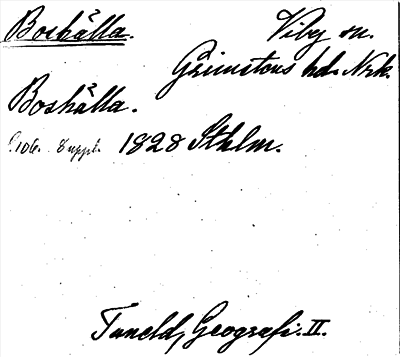 Boshålla.
Viby sn.
Grimstens hd. Nrk.
Boshålla.
S. 106. Suppl. 1828 Sthlm.
Tuneld, Geografi. II.